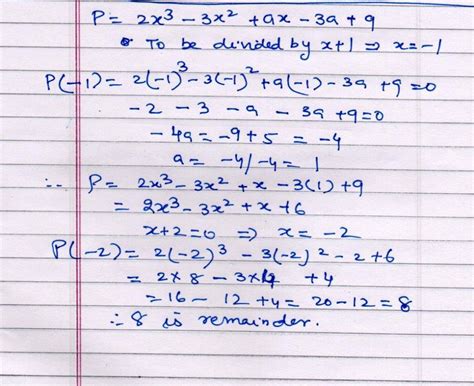 P = 2x³ - 3x² + ax - 3a + 9
• To be divided by x+1 ⇒ x = -1
P(-1) = 2(-1)³ - 3(-1)² + a(-1) - 3a + 9 = 0
-2 - 3 - a - 3a + 9 = 0
-4a = -9 + 5 = -4
a = -4/-4 = 1
∴ P = 2x³ - 3x² + x - 3(1) + 9
= 2x³ - 3x² + x + 6
x+2 = 0 ⇒ x = -2
P(-2) = 2(-2)³ - 3(-2)² - 2 + 6
= 2×8 - 3×4 + 4
= 16 - 12 + 4 = 20 - 12 = 8
∴ 8 is remainder.